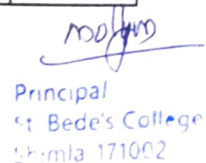 Principal
St Bede's College
Shimla 171002